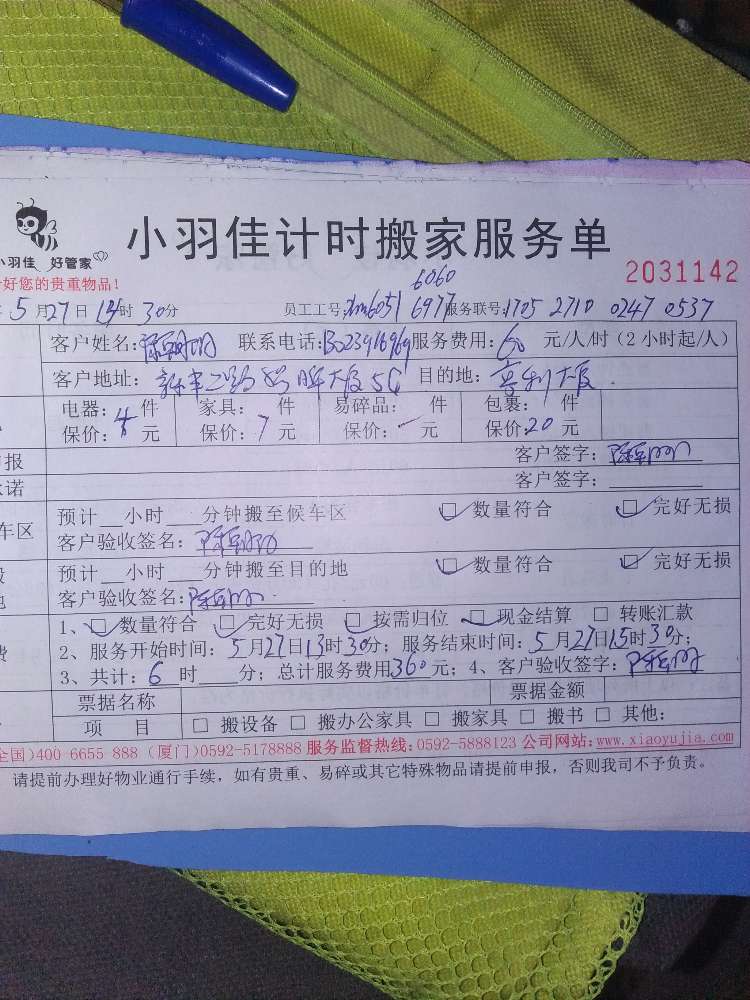 小羽佳计时搬家服务单
小羽佳 好管家
好您的贵重物品！
2031142
6060
5月27日13时30分 员工工号: 6051 6977 服务联号: 1705 2710 0247 0537
客户姓名: 联系电话: 服务费用: 60 元/人/时(2小时起/人)
客户地址: 大厦5G 目的地: 大厦
电器: 4 件 家具: 件 易碎品: 件 包裹: 件
保价: 元 保价: 7 元 保价: 元 保价: 20 元
报 客户签字:
诺 客户签字:
车区 预计__小时___分钟搬至候车区 ☑ 数量符合 ☑ 完好无损
客户验收签名:
预计__小时___分钟搬至目的地 ☑ 数量符合 ☑ 完好无损
地 客户验收签名:
1、☑ 数量符合 ☑ 完好无损 ☑ 按需归位 ☑ 现金结算 □ 转账汇款
费 2、服务开始时间: 5月27日13时30分; 服务结束时间: 5月27日15时30分;
3、共计: 6 时___分; 总计服务费用360元; 4、客户验收签字:
票据名称 票据金额
项 目 □ 搬设备 □ 搬办公家具 □ 搬家具 □ 搬书 □ 其他:
全国)400 6655 888 (厦门)0592-5178888 服务监督热线:0592-5888123 公司网站:www.xiaoyujia.com
请提前办理好物业通行手续，如有贵重、易碎或其它特殊物品请提前申报，否则我司不予负责。